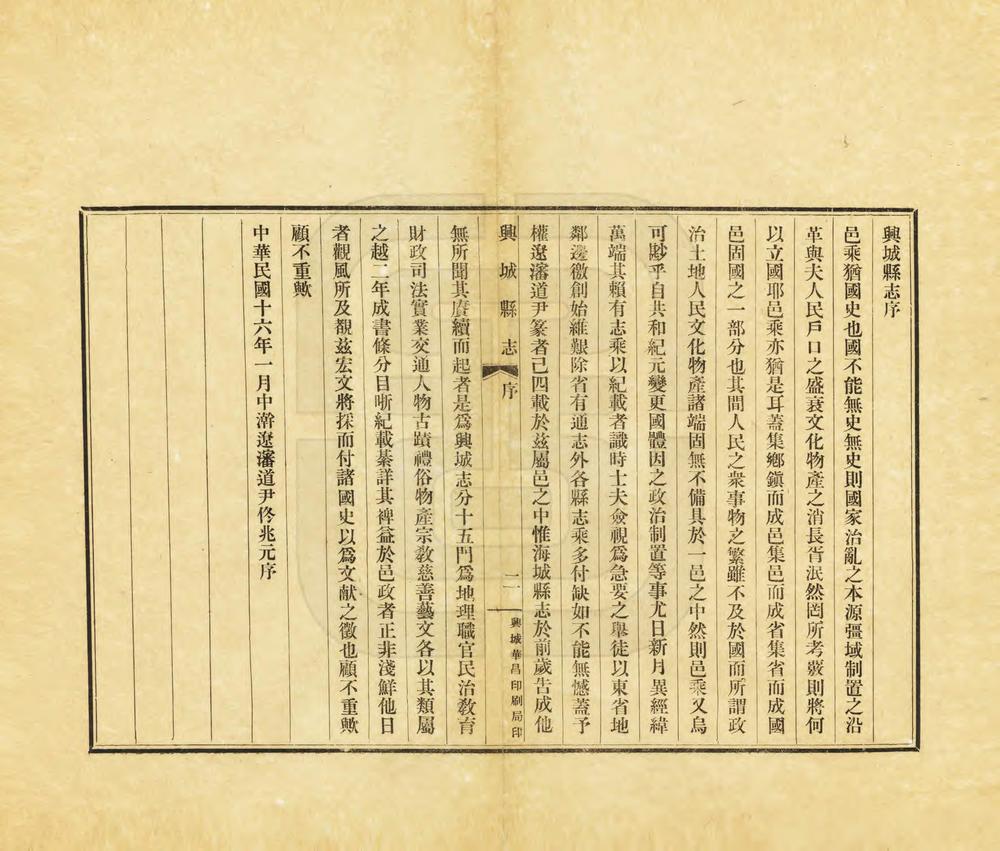 興城縣志序
邑乘猶國史也國不能無史無史則國家治亂之本源疆域制置之沿
革與夫人民戶口之盛衰文化物產之消長胥泯然罔所考覈則將何
以立國耶邑乘亦猶是耳蓋集鄉鎮而成邑集邑而成省集省而成國
邑固國之一部分也其間人民之衆事物之繁雖不及於國而所謂政
治土地人民文化物產諸端固無不備具於一邑之中然則邑乘又烏
可尠乎自共和紀元變更國體因之政治制置等事尤日新月異經緯
萬端其賴有志乘以紀載者識時士夫僉視爲急要之舉徒以東省地
鄰邊徼創始維艱除省有通志外各縣志乘多付缺如不能無憾蓋予
權遼瀋道尹篆者已四載於茲屬邑之中惟海城縣志於前歲告成他
興城縣志
序
二
興城華昌印刷局印
無所聞其賡續而起者是爲興城志分十五門爲地理職官民治教育
財政司法實業交通人物古蹟禮俗物產宗教慈善藝文各以其類屬
之越二年成書條分目晰紀載綦詳其裨益於邑政者正非淺鮮他日
者觀風所及覩茲宏文將採而付諸國史以爲文献之徵也顧不重歟
顧不重歟
中華民國十六年一月中澣遼瀋道尹佟兆元序